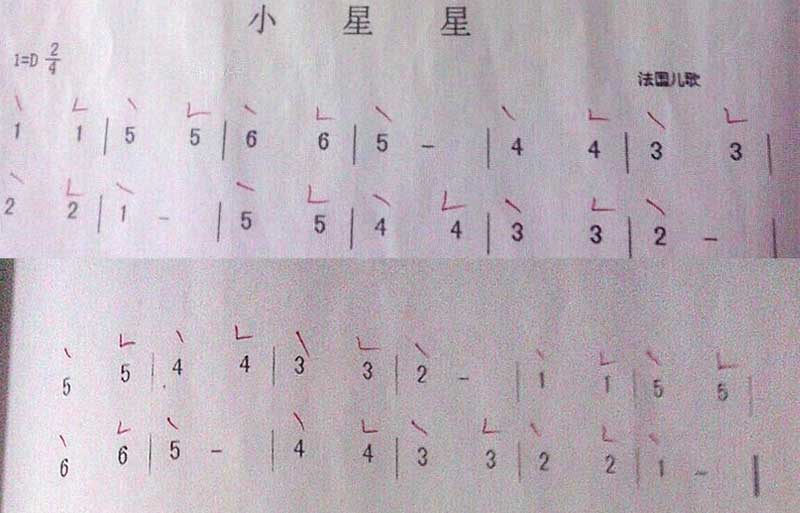 小 星 星
1=D 2/4
法国儿歌
1 1 | 5 5 | 6 6 | 5 – | 4 4 | 3 3 |
2 2 | 1 – | 5 5 | 4 4 | 3 3 | 2 – |
5 5 | 4 4 | 3 3 | 2 – | 1 1 | 5 5 |
6 6 | 5 – | 4 4 | 3 3 | 2 2 | 1 – |